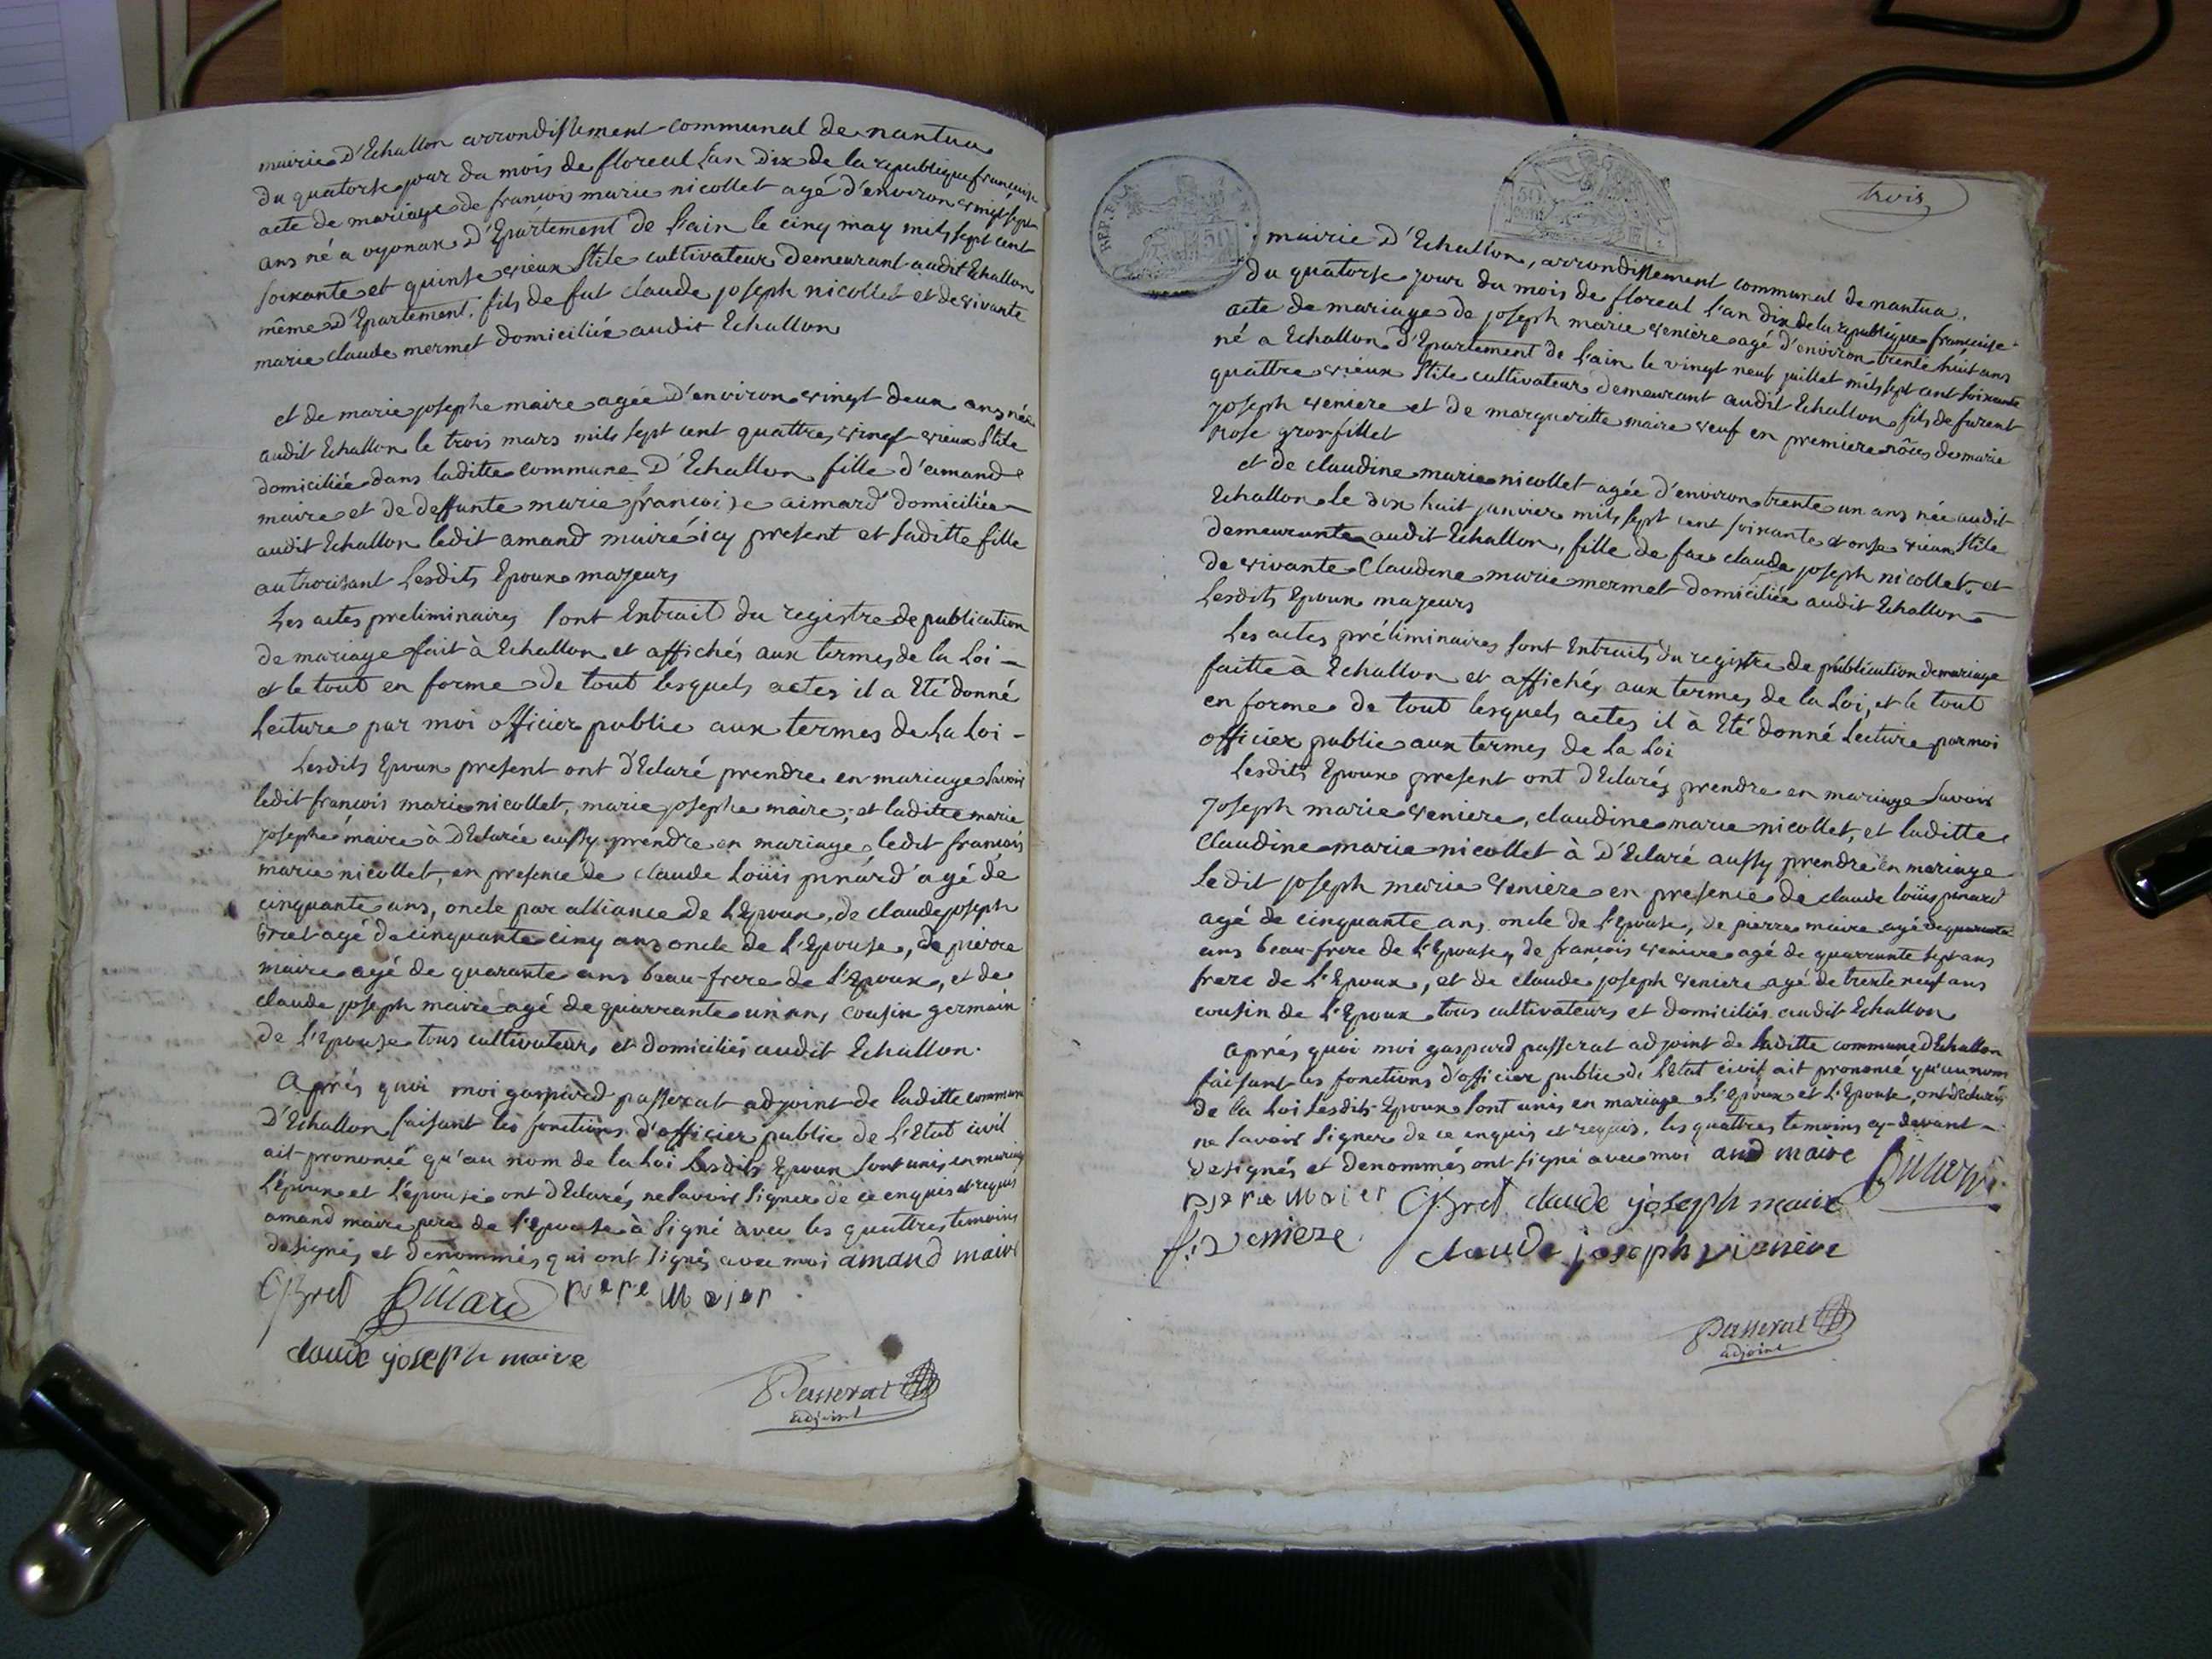 mairie D'Echallon arrondissement communal de nantua
du quatorse jour du mois de floreal L'an Dix de la republique française
acte de mariage de francois marie nicollet agé d'environ vingt sept
ans né a oyonax D'Epartement de l'ain le cinq may mils sept cent
soixante et quinse vieux stile cultivateur demeurant audit Echallon
même D'Epartement, fils de fut claude joseph nicollet et de vivante
marie claude mermet domiciliée audit Echallon
et de marie josephe maire agée D'environ vingt deux ans née
audit Echallon le trois mars mils sept cent quattres vingt vieux stile
domiciliée dans laditte commune D'Echallon fille d'amand
maire et de deffunte marie francoise aimard domiciliée
audit Echallon ledit amand maire icy present et saditte fille
authorisant Lesdits Epoux majeurs
Les actes preliminaires sont Extrait du registre de publication
de mariage fait à Echallon et affichés aux termes de la Loi
et le tout en forme de tout lesquels actes il a Eté donné
Lecture par moi officier public aux termes de La Loi
Lesdits Epoux present ont d'Eclaré prendre en mariage savoir
ledit francois marie nicollet, marie josephe maire, et laditte marie
josephe maire à D'Eclarée aussy prendre en mariage ledit francois
marie nicollet, en presence de claude Loüis pinard agé de
cinquante ans, oncle par alliance de L'Epoux, de claude joseph
Bret agé de cinquante cinq ans oncle de L'Epouse, de pierre
maire agé de quarante ans beau-frere de L'Epoux, et de
claude joseph maire agé de quarrante un ans cousin germain
de l'Epouse tous cultivateurs et domiciliés audit Echallon.
Aprés quoi moi gaspard passerat adjoint de laditte commune
D'Echallon faisant les fonctions d'officier public de L'Etat civil
ait prononcé qu'au nom de la Loi Lesdits Epoux sont unis en mariage
L'époux et L'épouse ont d'Eclarés ne savoir signer de ce enquis et requis
amand maire pere de l'Epouse à signé avec les quattres temoins
designés et denommés qui ont signés avec moi amand maire
CJBret Pinard piere maier
claude joseph maire
Passerat
adjoint
trois
REP. FRA. 50
50
mairie D'Echallon, arrondissement communal de nantua.
du quatorse jour du mois de floreal l'an dix de la republique francaise
acte de mariage de joseph marie veniere agé d'environ trente huit ans
né a Echallon d'Epartement de l'ain le vingt neuf juillet mils sept cent soixante
quattre vieux stile cultivateur demeurant audit Echallon fils de furent
joseph veniere et de margueritte maire veuf en premiere nôces de marie
Rose gros-fillet
et de claudine marie nicollet agée d'environ trente un ans née audit
Echallon le dix huit janvier mils sept cent soixante et onse vieux stile
demeurante audit Echallon, fille de feu claude joseph nicollet et
de vivante Claudine marie mermet domiciliée audit Echallon
Lesdits Epoux majeurs
Les actes préliminaires sont Extraits du registre de publication de mariage
faitte à Echallon et affichés aux termes de la Loi, et le tout
en forme de tout lesquels actes il à Eté donné Lecture par moi
officier public aux termes de La Loi
Lesdits Epoux present ont d'Eclarés prendre en mariage savoir
Joseph marie veniere, claudine marie nicollet, et laditte
Claudine marie nicollet à D'Eclaré aussy prendre en mariage
Ledit joseph marie veniere en presence de claude loüis pinard
agé de cinquante ans oncle de l'Epouse, de pierre maire agé de quarante
ans beau-frere de L'Epouse, de francois veniere agé de quarrante sept ans
frere de L'Epoux, et de claude joseph veniere agé de trente neuf ans
cousin de L'Epoux tous cultivateurs et domiciliés audit Echallon
Aprés quoi moi gaspard passerat adjoint de laditte commune d'Echallon
faisant les fonctions d'officier public de L'Etat civil ait prononcé qu'au nom
de la Loi Lesdits Epoux sont unis en mariage L'Epoux et L'Epouse, ont déclarés
ne savoir signer de ce enquis et requis, les quattres temoins cy-devant
designés et denommés ont signé avec moi amd maire
piere maier CJBret claude joseph maire Pinard
f: veniere claude joseph vieniere
Passerat
adjoint